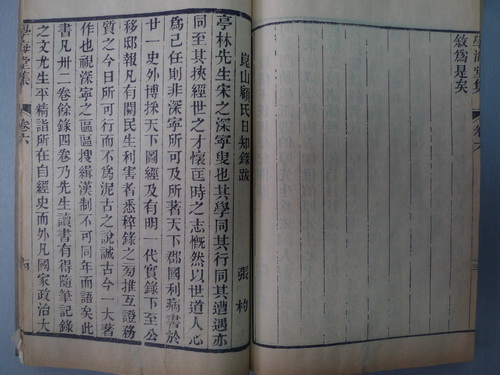 學海堂集 卷六
敘爲是矣
崑山顧氏日知錄跋 張杓
亭林先生宋之深寧叟也其學同其行同其遭遇亦
同至其挾經世之才懷匡時之志慨然以世道人心
爲己任則非深寧所可及所著天下郡國利病書於
廿一史外博採天下圖經及有明一代實錄下至公
移邸報凡有關民生利害者悉稡錄之旁推互證務
質之今日所可行而不爲泥古之說誠古今一大著
作也視深寧之區區搜緝漢制不可同年而語矣此
書凡卅二卷餘錄四卷乃先生讀書有得隨筆記錄
之文尤生平精詣所在自經史而外凡國家政治大
學海堂集 卷六